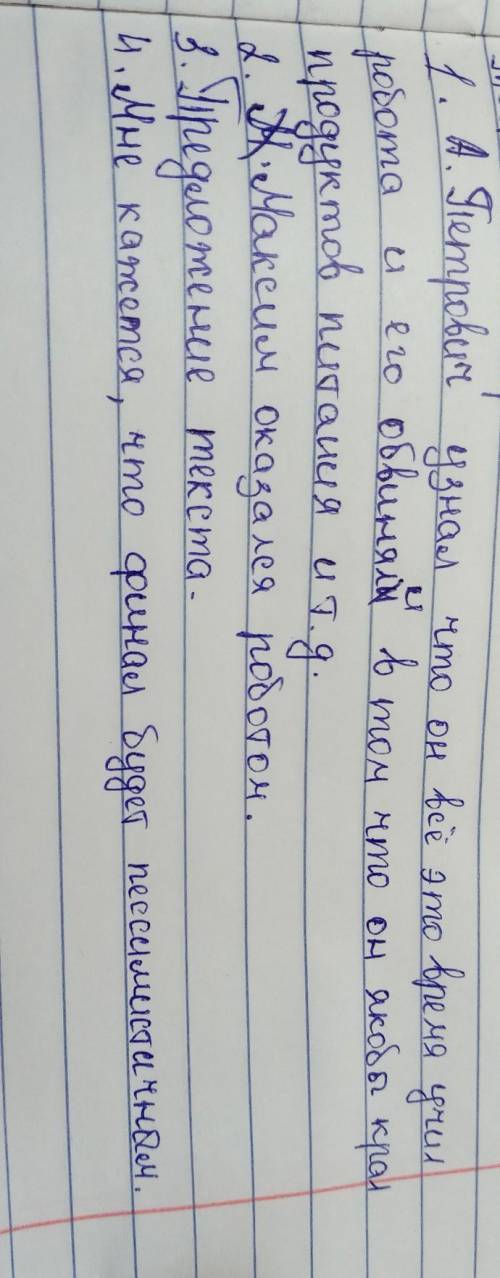 1. А. Петрович узнал что он всё это время учил
робота и его обвиняли в том что он якобы крал
продуктов питания и т.д.
2. М. Максим оказался роботом.
3. Предложение текста.
4. Мне кажется, что финал будет пессимистичным.